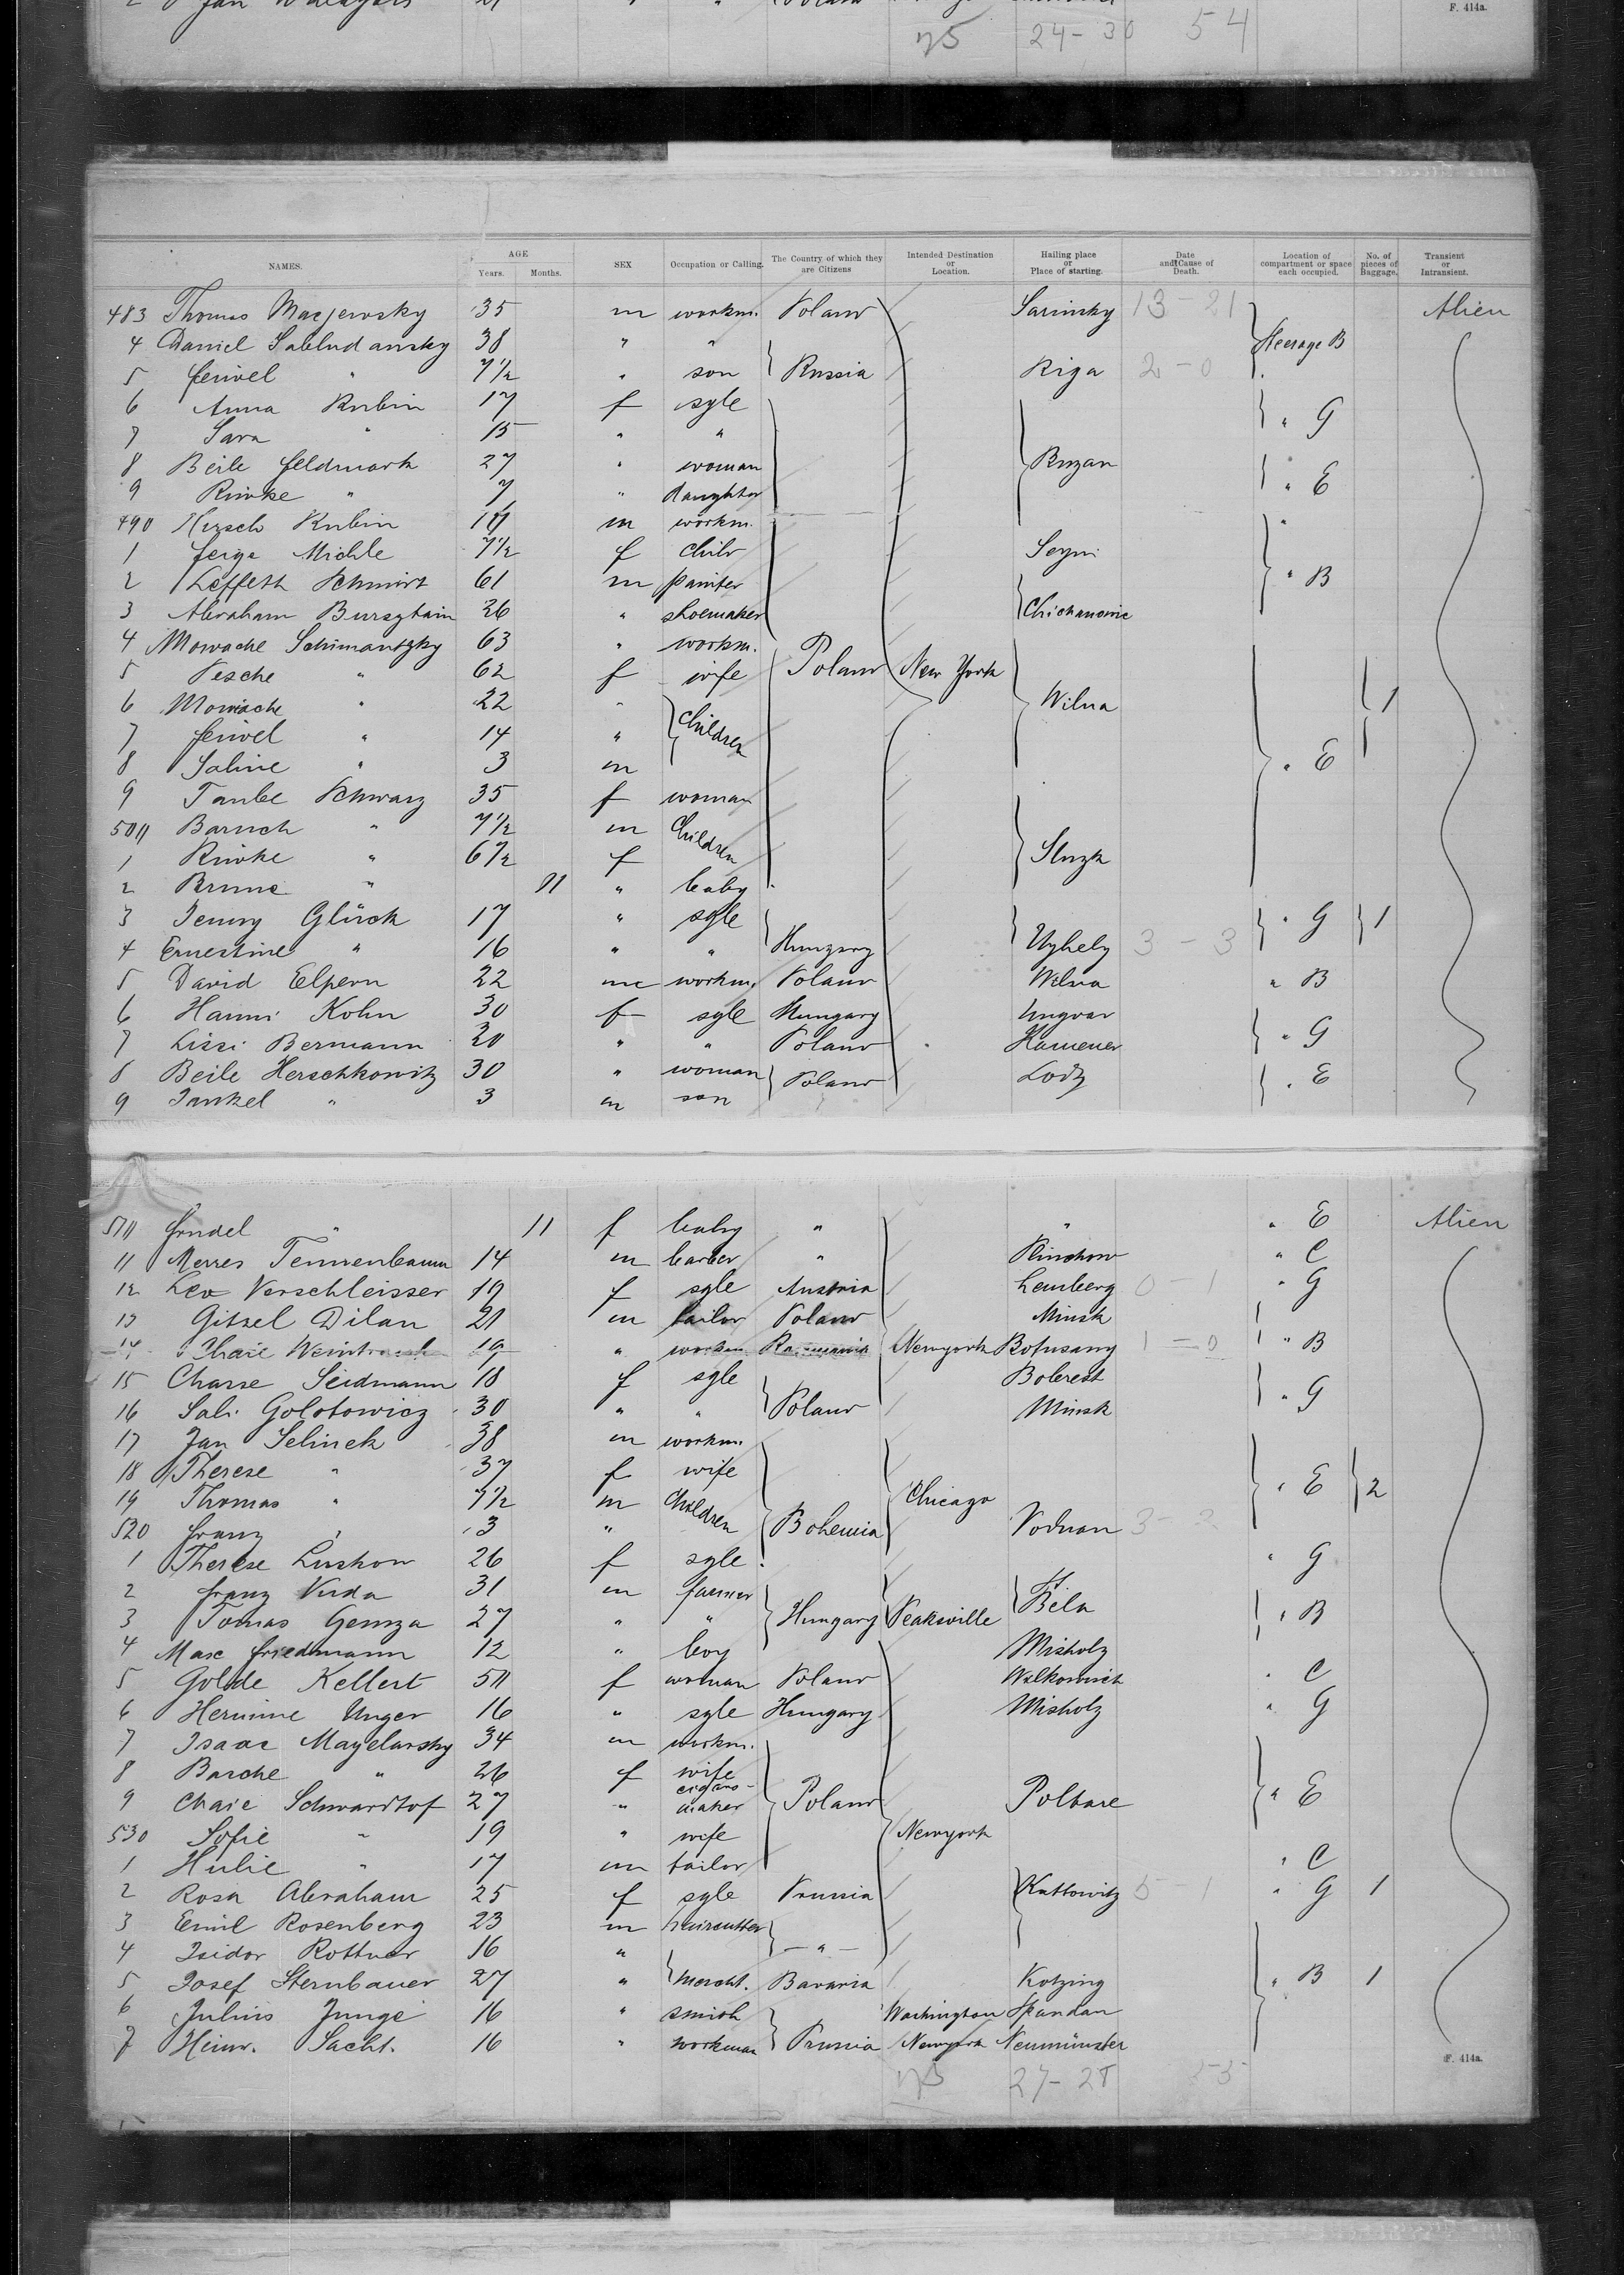 F. 414a.
75 24-30 54
NAMES. AGE Years. Months. SEX Occupation or Calling. The Country of which they are Citizens Intended Destination or Location. Hailing place or Place of starting. Date and Cause of Death. Location of compartment or space each occupied. No. of pieces of Baggage. Transient or Intransient.
483 Thomas Macjewsky 35 m workm. Poland Sarinsky 13 21 Alien
4 Daniel 38 " " Steerage B
5 Feiwel " 7½ " son Russia Riga 2-0
6 Anna Rubin 17 f sgle " G
7 Sara " 15 " "
8 Beile Feldmark 27 " woman Ruzan
9 Riwke " 7 " daughter " E
490 Hirsch Rubin 19 m workm. "
1 Feiga Michle 7½ f child Seyni
2 Schmidt 61 m painter " B
3 Abraham Bursztain 26 " shoemaker Chichanowic
4 Mowsche Schimantzky 63 " workm.
5 Pesche " 62 f wife Poland New York
6 Mowsche " 22 " Children Wilna 1
7 Feiwel " 14 "
8 Saline " 3 m " E
9 Taube Schwarz 35 f woman
500 Baruch " 7½ m Children
1 Riwke " 6½ f Sluzk
2 Brune " 11 " baby
3 Jenny Glück 17 " sgle " G 1
4 Ernestine " 16 " " Hungary Ujhely 3-3
5 David Elpern 22 m workm. Poland Wilna " B
6 Hanni Kohn 30 f sgle Hungary Ungvar
7 Lissi Bermann 20 " " Poland " Kamener " G
8 Beile Herschkowitz 30 " woman Poland Lodz " E
9 Jankel " 3 m son
510 Frudel " 11 f baby " " " E Alien
11 Merres Tennenbaum 14 m barber " Plinchow " C
12 Leo Verschleisser 19 f sgle Austria Lemberg 0-1 " G
13 Gitzel Dilan 21 m tailor Poland Minsk
14 Chaie Weintraub 19 " workm Roumania Newyork Botusany 1-0 " B
15 Charse Seidmann 18 f sgle Bolerest
16 Sali Golotowicz 30 " " Poland Minsk " G
17 Jan Selinek 38 m workm.
18 Therese " 37 f wife " E 2
19 Thomas " 7½ m Children Chicago
520 Franz " 3 " Bohemia Vodnan 3-2
1 Therese Luskow 26 f sgle " G
2 Franz Vuda 31 m farmer Bela
3 Tomas Gemza 27 " " Hungary Peaksville " B
4 Max Friedmann 12 " boy Misholz
5 Golde Kellert 50 f woman Poland Wilkowisch " C
6 Hermine Unger 16 " sgle Hungary Misholz " G
7 Isaac Mayelarsky 34 m workm.
8 Basche " 26 f wife
9 Chaie Schwardtof 27 " cigars-maker Poland Poltare " E
530 Sofie " 19 " wife Newyork
1 Hulie " 17 m tailor " C
2 Rosa Abraham 25 f sgle Prussia Kattowitz 5-1 " G 1
3 Emil Rosenberg 23 m haircutter
4 Isidor Rottner 16 " — " —
5 Josef Sternbauer 27 " mercht. Bavaria Kotzing " B 1
6 Julius Junge 16 " smith Washington Spandau
7 Heinr. Sacht. 16 " workman Prussia Newyork Neumünster
F. 414a.